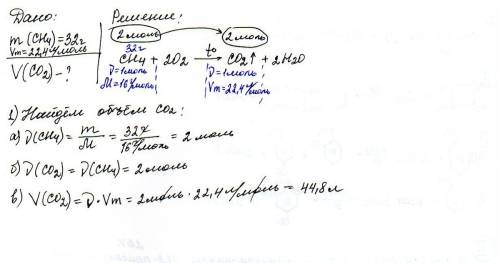 Дано:
m(CH4)=32г
Vm=22,4л/моль
V(CO2)-?
Решение:
2моль 2моль
32г
CH4 + 2O2 →t° CO2↑ + 2H2O
D=1моль D=1моль
M=16г/моль Vm=22,4л/моль
1) Найдём объём CO2:
а) D(CH4)= m/M = 32г/16г/моль = 2 моль
б) D(CO2)=D(CH4)=2моль
в) V(CO2)=D·Vm=2моль·22,4л/моль=44,8л